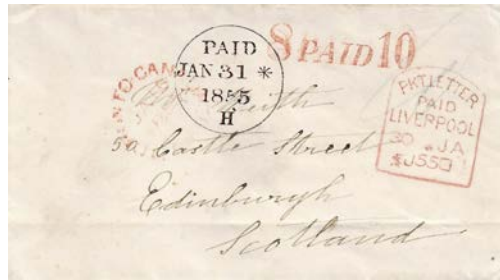 PAID
JAN 31 *
1855
H
8 PAID 10
TO. CAN
PKT LETTER
PAID
LIVERPOOL
30 JA
50 Castle Street
Edinburgh
Scotland